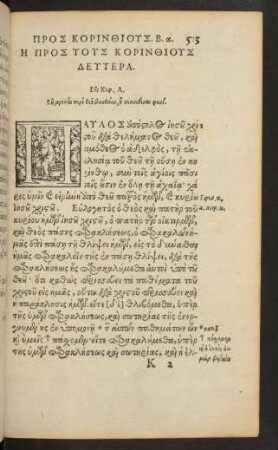 ΠΡΟΣ ΚΟΡΙΝΘΙΟΥΣ. Β. α. 513
Η ΠΡΟΣ ΤΟΥΣ ΚΟΡΙΝΘΙΟΥΣ
ΔΕΥΤΕΡΑ.
Εἰς Κεφ. Α.
ΑΥΛΟΣ ἀπόστολος ἰησοῦ χρι-
στοῦ διὰ θελήματος θεοῦ, καὶ
τιμόθεος ὁ ἀδελφὸς, τῇ ἐκ-
κλησίᾳ τοῦ θεοῦ τῇ οὔσῃ ἐν κο-
ρίνθῳ, σὺν τοῖς ἁγίοις πᾶσι
τοῖς οὖσιν ἐν ὅλῃ τῇ ἀχαΐᾳ· χά-
ρις ὑμῖν καὶ εἰρήνη ἀπὸ θεοῦ πατρὸς ἡμῶν, καὶ κυρίου
ἰησοῦ χριστοῦ. Εὐλογητὸς ὁ θεὸς καὶ πατὴρ τοῦ
κυρίου ἡμῶν ἰησοῦ χριστοῦ, ὁ πατὴρ τῶν οἰκτιρμῶν,
καὶ θεὸς πάσης παρακλήσεως, ὁ παρακαλῶν ἡ-
μᾶς ἐπὶ πάσῃ τῇ θλίψει ἡμῶν, εἰς τὸ δύνασθαι
ἡμᾶς παρακαλεῖν τοὺς ἐν πάσῃ θλίψει, διὰ τῆς
παρακλήσεως ἧς παρακαλούμεθα αὐτοὶ ὑπὸ τοῦ
θεοῦ· ὅτι καθὼς περισσεύει τὰ παθήματα τοῦ
χριστοῦ εἰς ἡμᾶς, οὕτω διὰ χριστοῦ περισσεύει καὶ
ἡ παράκλησις ἡμῶν. εἴτε δὲ θλιβόμεθα, ὑπὲρ
τῆς ὑμῶν παρακλήσεως, καὶ σωτηρίας τῆς ἐνερ-
γουμένης ἐν ὑπομονῇ τῶν αὐτῶν παθημάτων ὧν
καὶ ἡμεῖς πάσχομεν· εἴτε παρακαλούμεθα, ὑπὲρ
τῆς ὑμῶν παρακλήσεως, καὶ σωτηρίας, καὶ ἡ ἐλ-
K 2